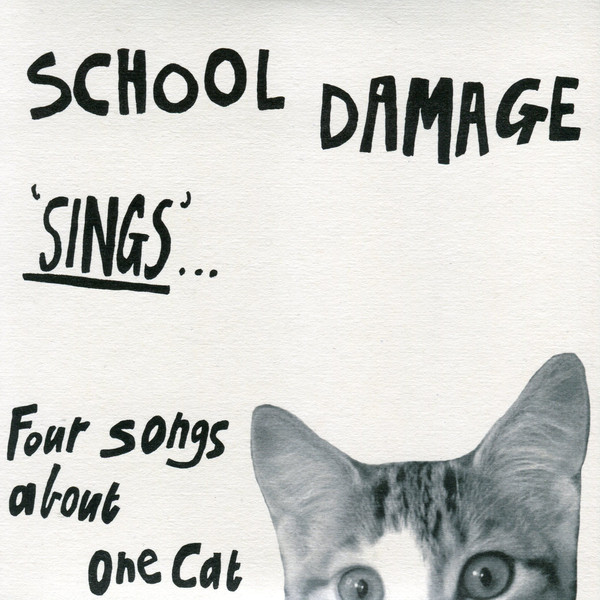 SCHOOL DAMAGE
'SINGS'...
Four songs
about
one Cat